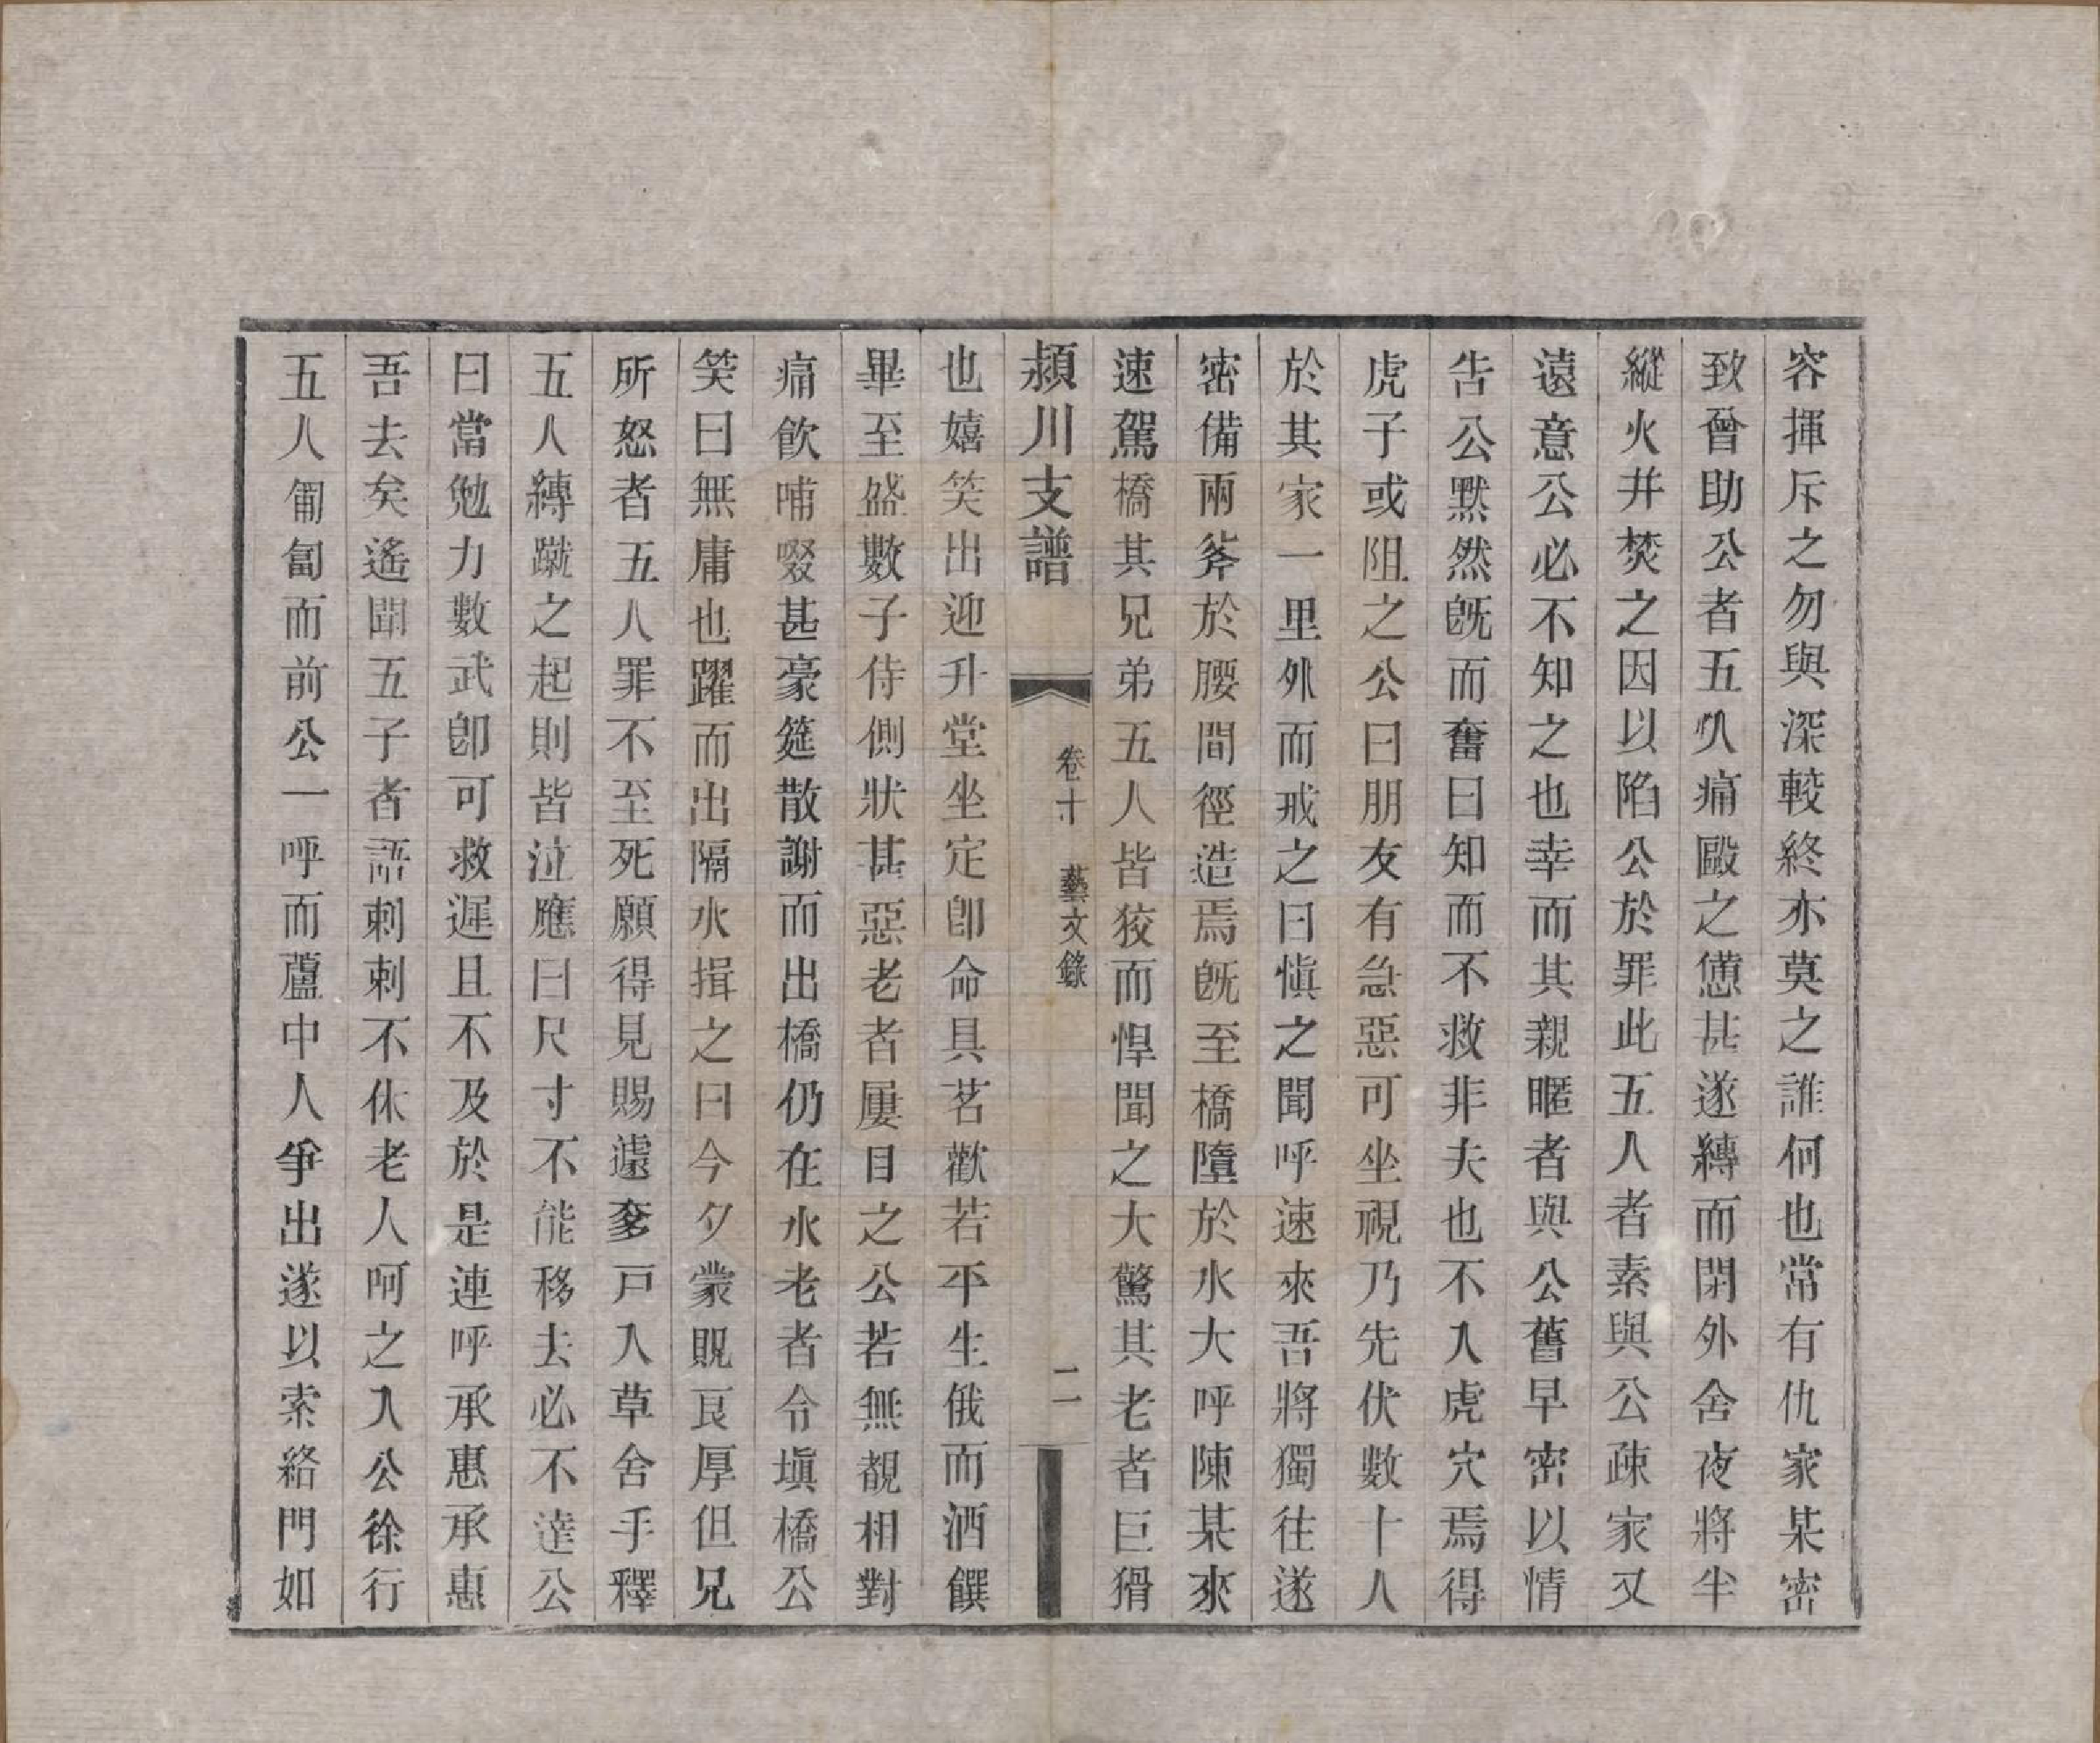 容揮斥之勿與深較終亦莫之誰何也常有仇家某密
致曾助公者五人痛毆之憊甚遂縛而閉外舍夜將半
縱火并焚之因以陷公於罪此五人者素與公疎家又
遠意公必不知之也幸而其親暱者與公舊早密以情
告公默然既而奮曰知而不救非夫也不入虎穴焉得
虎子或阻之公曰朋友有急惡可坐視乃先伏數十人
於其家一里外而戒之曰愼之聞呼速來吾將獨往遂
密備兩斧於腰間徑造焉既至橋墮於水大呼陳某來
速駕橋其兄弟五人皆狡而悍聞之大驚其老者巨猾
潁川支譜 卷十 藝文錄 二
也嬉笑出迎升堂坐定卽命具茗歡若平生俄而酒饌
畢至盛數子侍側狀甚惡老者屢目之公若無覩相對
痛飮哺啜甚豪筵散謝而出橋仍在水老者令塡橋公
笑曰無庸也躍而出隔水揖之曰今夕蒙貺良厚但兄
所怒者五人罪不至死願得見賜遽奓戸入草舍手釋
五人縛蹴之起則皆泣應曰尺寸不能移去必不達公
曰當勉力數武卽可救遲且不及於是連呼承惠承惠
吾去矣遙聞五子者語剌剌不休老人呵之入公徐行
五人匍匐而前公一呼而蘆中人爭出遂以索絡門如